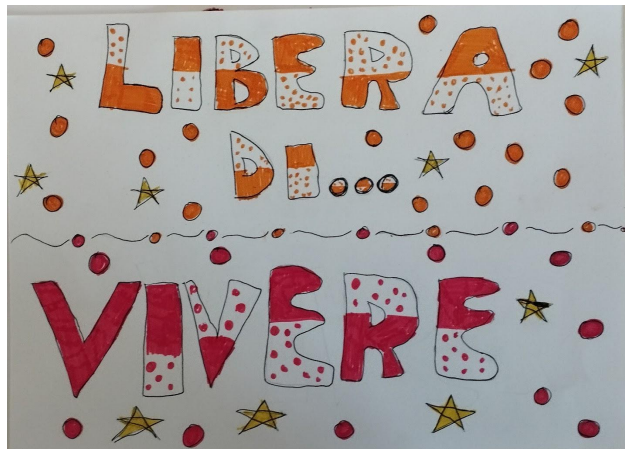 LIBERA
DI...
VIVERE